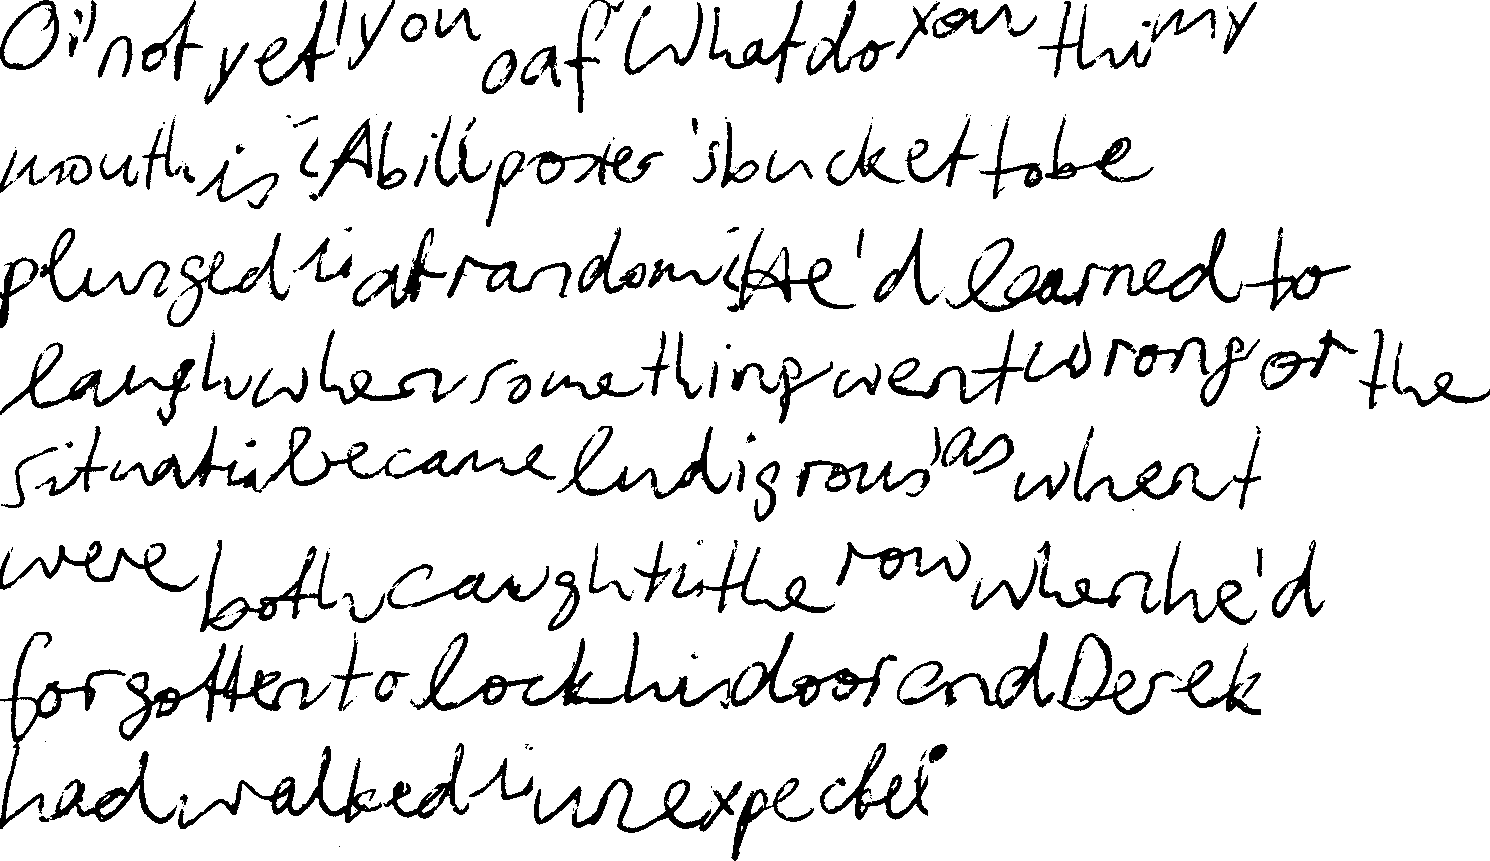 Oi, not yet, you oaf. What do you thi my
mouth is? A billposter's bucket to be
plunged in at random? He'd learned to
laugh when something went wrong or the
situatin became ludicrous, as when t
were both caught in the row when he'd
forgotten to lock his door and Derek
had walked in unexpected.